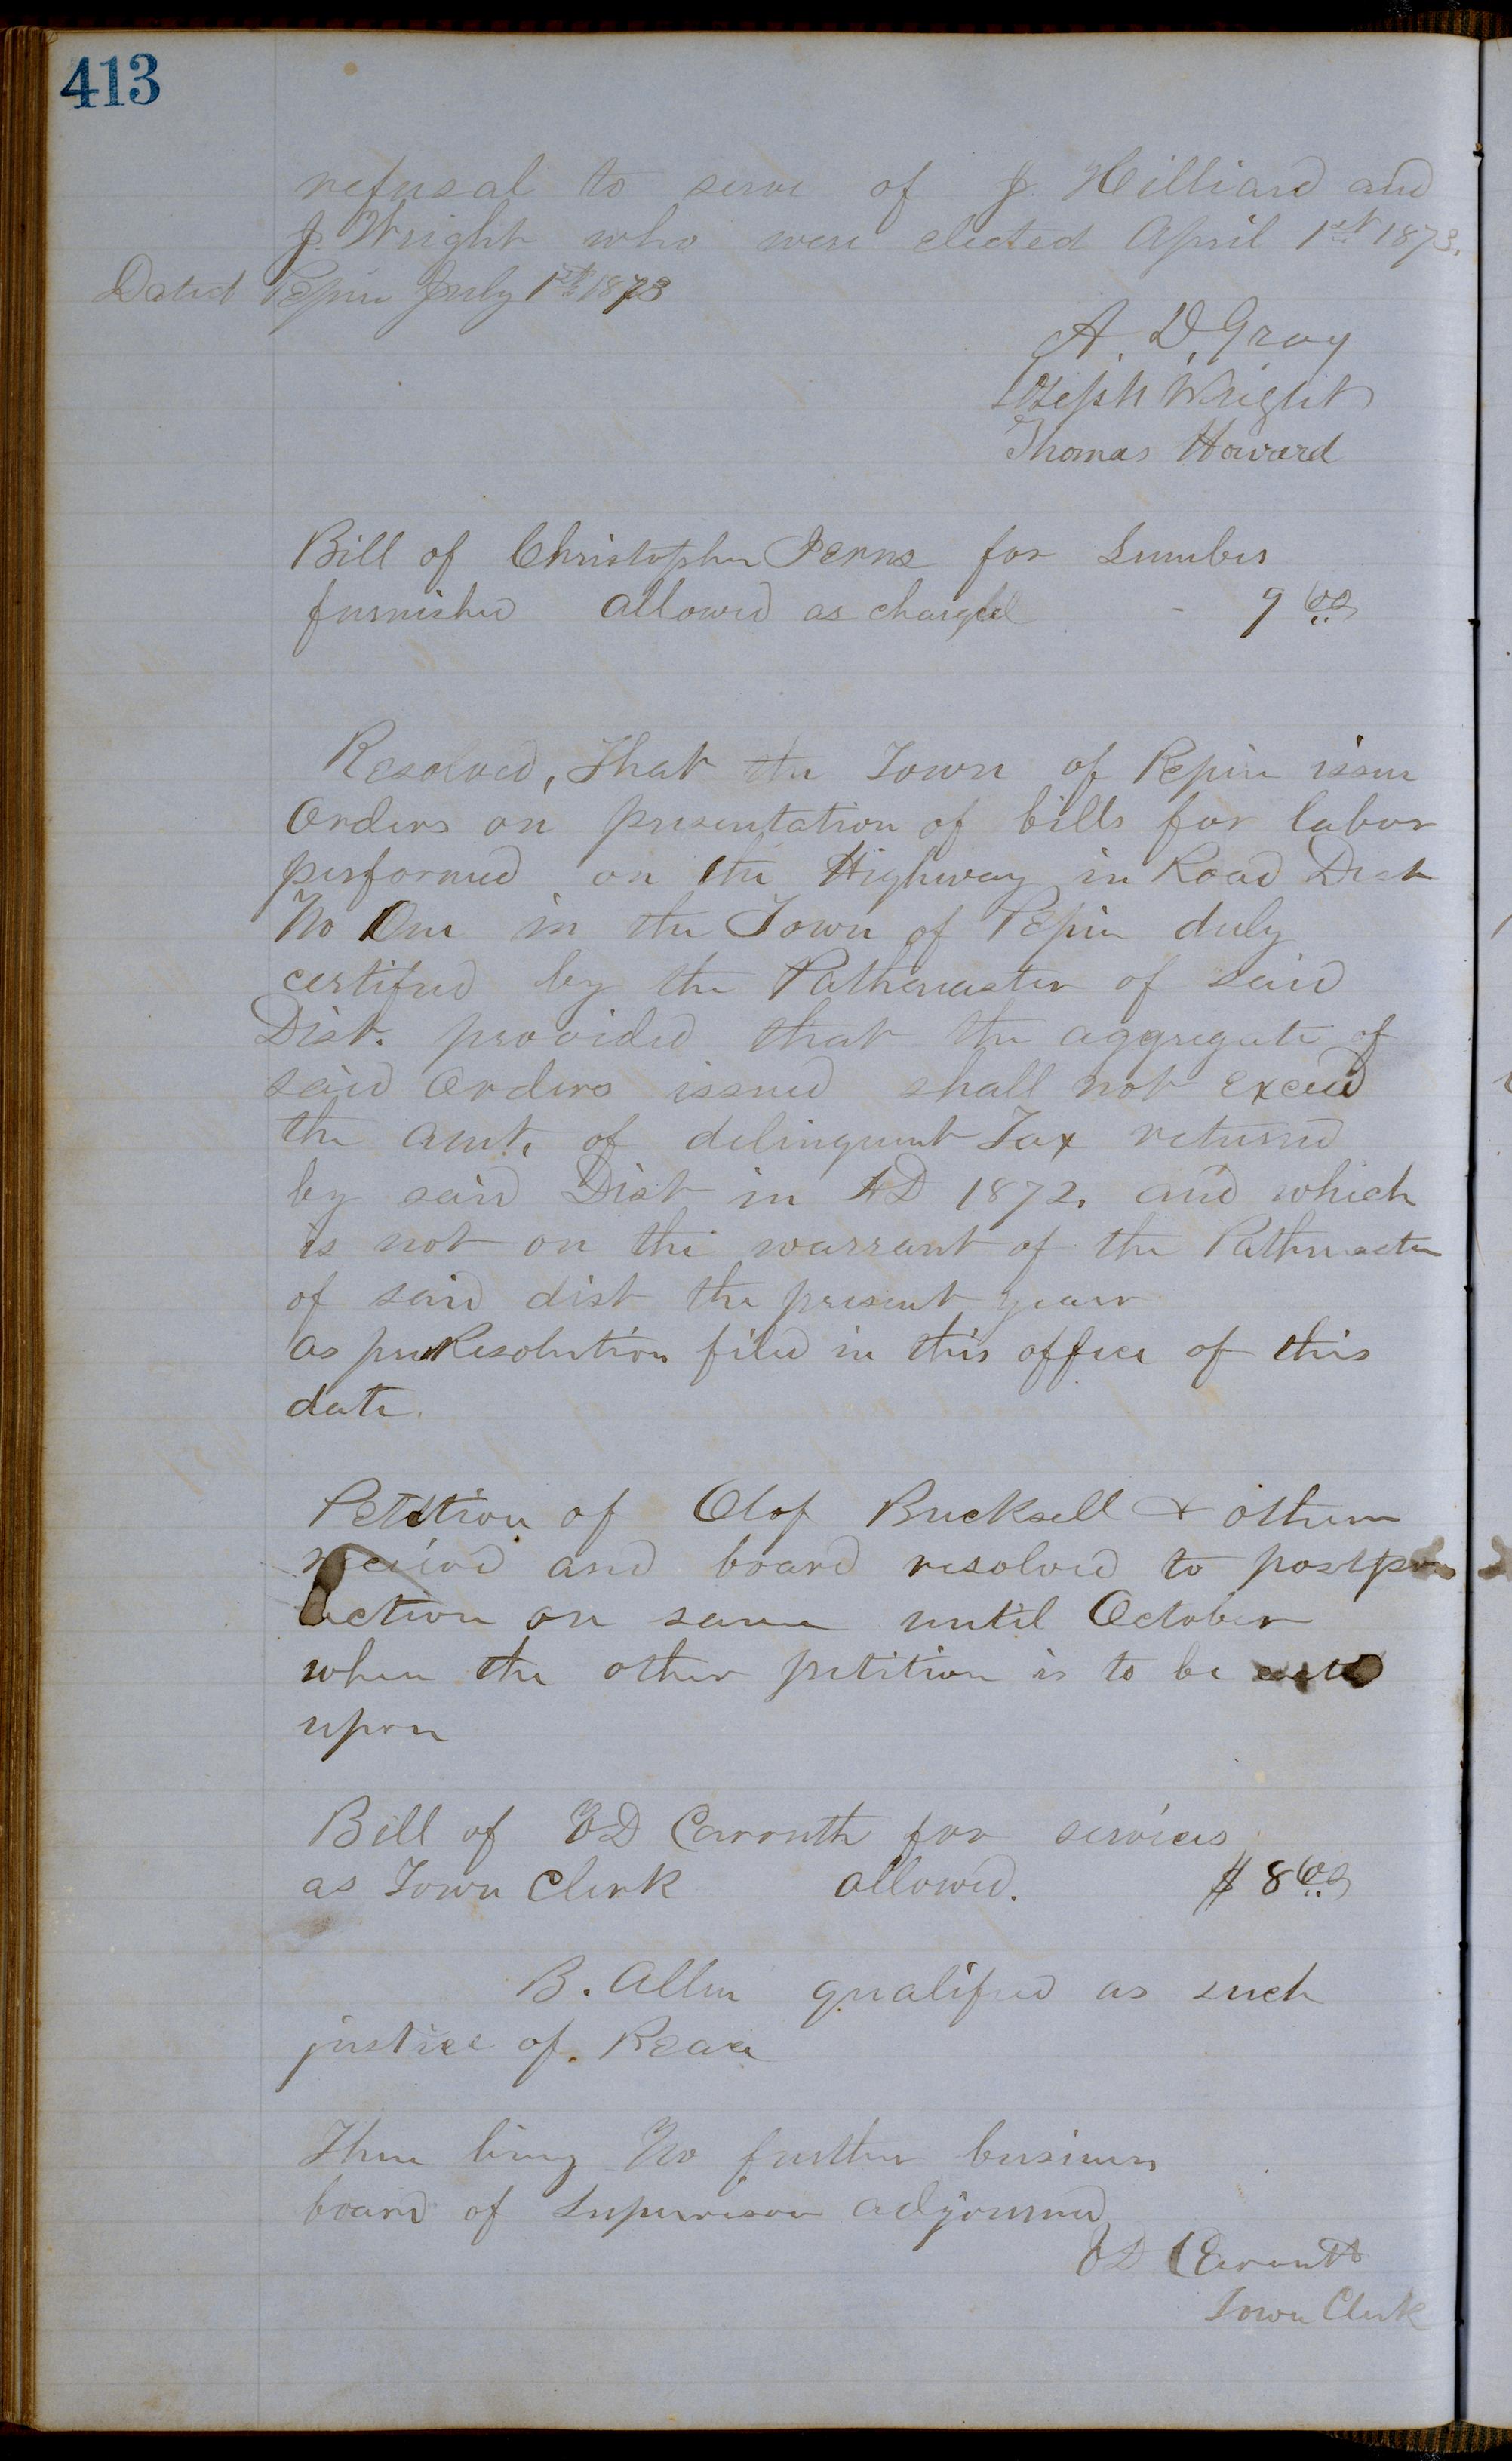 413
refusal to serve of J. Hilliard and
J. Wright who were elected April 1st 1873.
Dated Pepin July 1st 1873
A. D. Gray
Joseph Wright
Thomas Howard
Bill of Christopher for Lumber
furnished allowed as charged - 9 00
Resolved, That the Town of Pepin issue
Orders on presentation of bills for labor
performed on the Highway in Road Dist
No One in the Town of Pepin duly
certified by the Pathmaster of said
Dist. provided that the aggregate of
said Orders issued shall not exceed
the amt. of delinquent Tax returned
by said Dist in AD 1872. and which
is not on the warrant of the Pathmaster
of said dist the present year
as per Resolution filed in this office of this
date.
Petition of Olof Bucksell & others
received and board resolved to postpone
action on same until October
when the other petition is to be
upon
Bill of E D Carruth for services
as Town Clerk allowed. $ 8 00
B. Allen qualified as such
justice of Peace
There being No further business
board of Supervisors adjourned
E D Carruth
Town Clerk